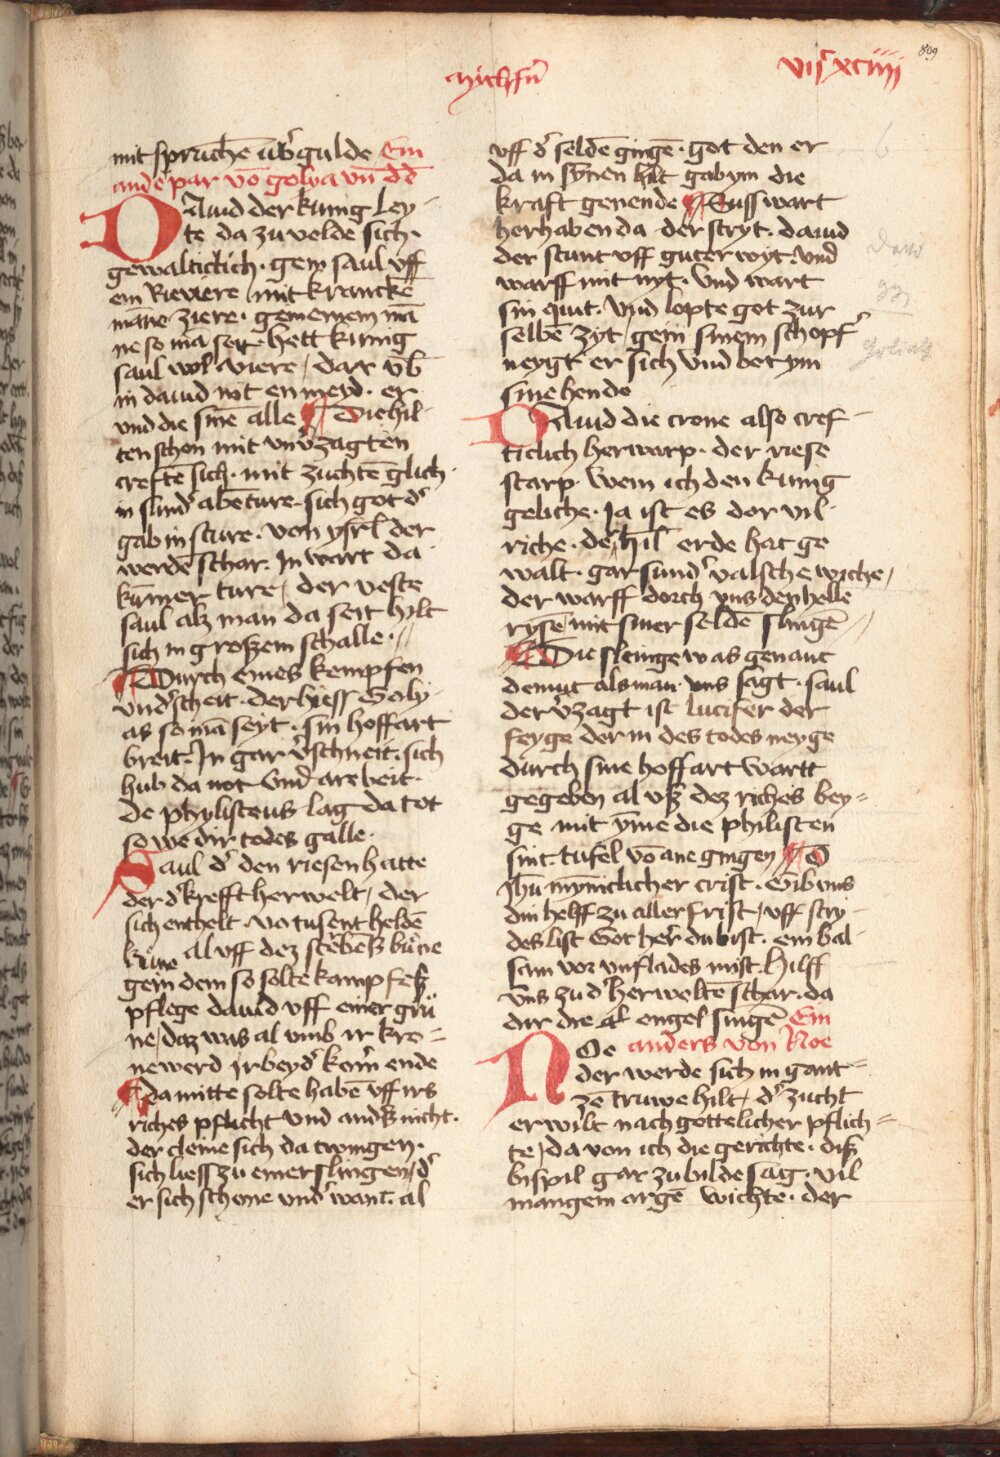 809
vijᶜ xciiij
mit sprūchē ūbʼgulde Ein
andʼ par vō golya vn̄ dʼ
DAuid der kunig ley-
te da zu velde sich·
gewalticlich· gein saul vff
ein Reviere / mit krancke
māne ziere· gemeinem mā
ne so mā seyt hett kunig
saul wol viere / dar vb̄
in dauid nit enmeyd· er
vnd die sinē alle Die hil-
ten schon mit vnvʼzagten
creftē sich· mit zuchte glich·
in sundʼ abēture· sich got dʼ
gab in sture· von ysrl̄ der
werdē schar. In wart da
kūmer ture / der veste
saul alz man da seit hilt
sich in großem schalle·
Durch eines kempfen
vndʼscheit· der hiess Goly-
as so mā seyt· sin hoffart
breit. In gar vʼschneit. sich
hub da not vnd arebeit·
de phylisteus lag da tot
so we dir todes galle·
Saul dʼ den riesen hatte
der dʼ krefft herwelt / der
sich enthelt· vo tusent heldē
kūne al vff dez sterbeß būne
gein dem so solte kampfeß
pflege dauid vff einer grū
ne / daz was al vmb ir kro-
ne werd ir beydʼ kom̄ ende
da mitte solte habē vff irs
riches pflicht vnd andʼs nicht·
der cleine sich da twingen·
sich liess zu einer slingen / dʼ
er sich schone vndʼwant. al
vff dʼ seldē gingē· got den er
da in synen hilt gab ym die
kraft genende Suss wart
herhaben da der stryt. dauid
der stunt vff guter wyt. vnd
warff mit nyt. vnd wart
sin quit. vnd lopte got zur
selbē zyt / gein sinem schopfʼ
neygt er sich vnd bot ym
sine hende
DAuid die crone also cref-
ticlich herwarp· der riese
starp. wem ich den kunig
geliche· Ja ist es der vil
riche· der hil erde hat ge
walt· gar sundʼ valsche wiche /
der warff dorch vns den helle
rysē mit siner seldē slingē
Die slinge was genant
demut als man vns sagt· saul
der vʼzagt ist lucifer der
feyge der in des todes neyge
durch sine hoffart wartt
gegeben al vß dez riches bey-
ge mit yme die philisten
sint. tufel vō ane gingen O
Jhū mynniclicher crist. Gib vns
din helff zu aller frist / vff stry-
des list Got her du bist. ein bal-
sam vor vnflades mist. hilff
vns zu dʼ herweltē schar. da
dir die engel singē Ein
NOe anders von Noe
der werde sich in gant-
ze truwe hilt / dʼ zucht
erwilt nach gottelicher pflich-
te / da von ich die gerichte· diß
bispil gar zu bilde sag. vil
mangem arge wichte· der